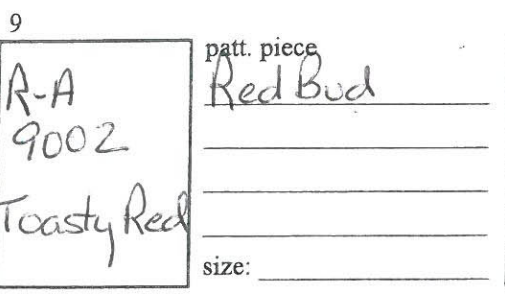 9
R-A
9002
Toasty Red
patt. piece
Red Bud
size: